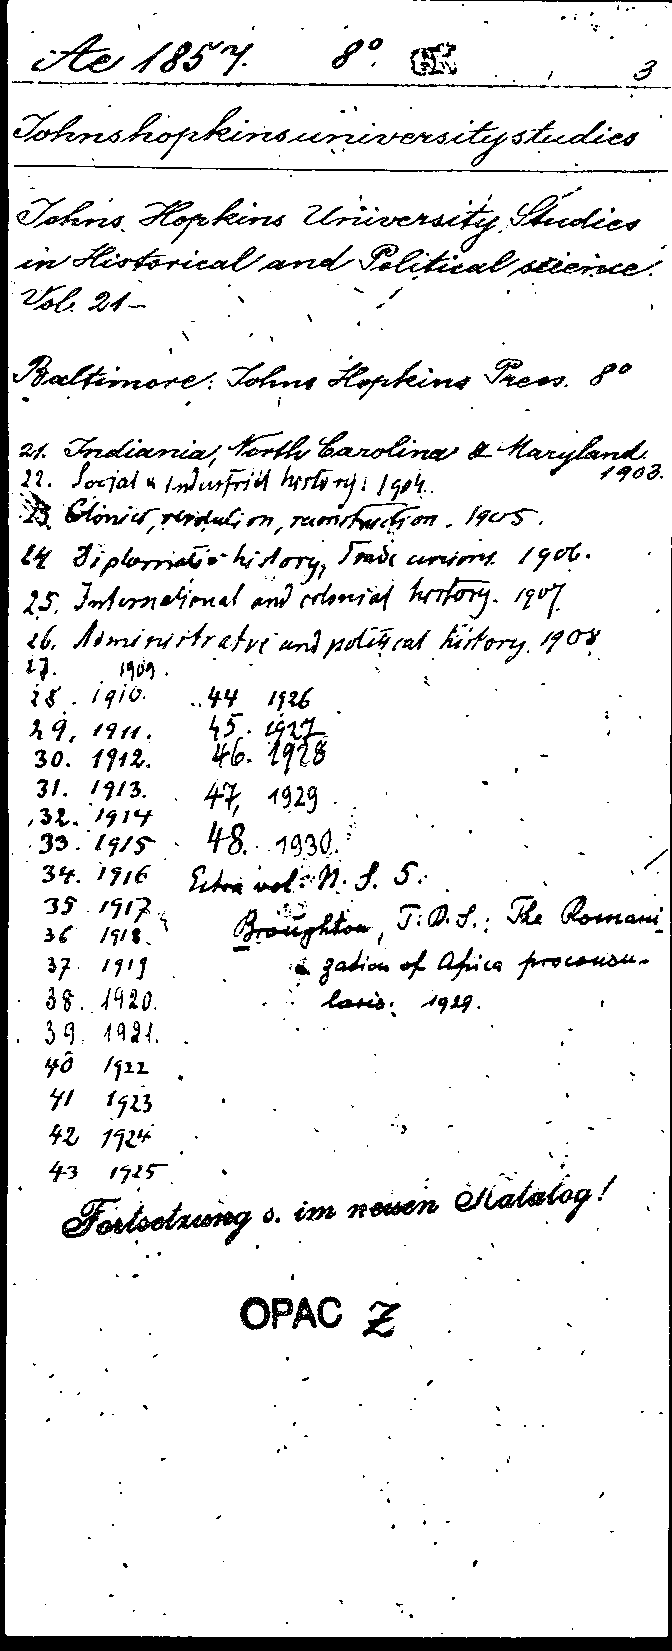 Ae 1857. 8° 3
Johnshopkinsuniversitystudies
Johns Hopkins University Studies
in Historical and Political science.
Vol. 21-
Baltimore: Johns Hopkins Press. 8°
21. Indiania, North Carolina & Maryland.
1903.
22. Social & Industrial history: 1904.
23 revolution, reconstruction. 1905.
24 Diplomatic history, Trade unions. 1906.
25. International and colonial history. 1907
26. Administrative and political history. 1908
27. 1909.
28. 1910. 44 1926
29. 1911. 45. 1927
30. 1912. 46. 1928
31. 1913. 47, 1929
32. 1914
33. 1915 48. 1930.
34. 1916 Extra vol. N. S. 5.
35 1917
36 1918. Broughton, T. R. S.: The Romani-
37 1919 zation of Africa proconsu-
38. 1920. laris. 1929.
39. 1921.
40 1922
41 1923
42 1924
43 1925
Fortsetzung s. im neuen Katalog!
OPAC Z